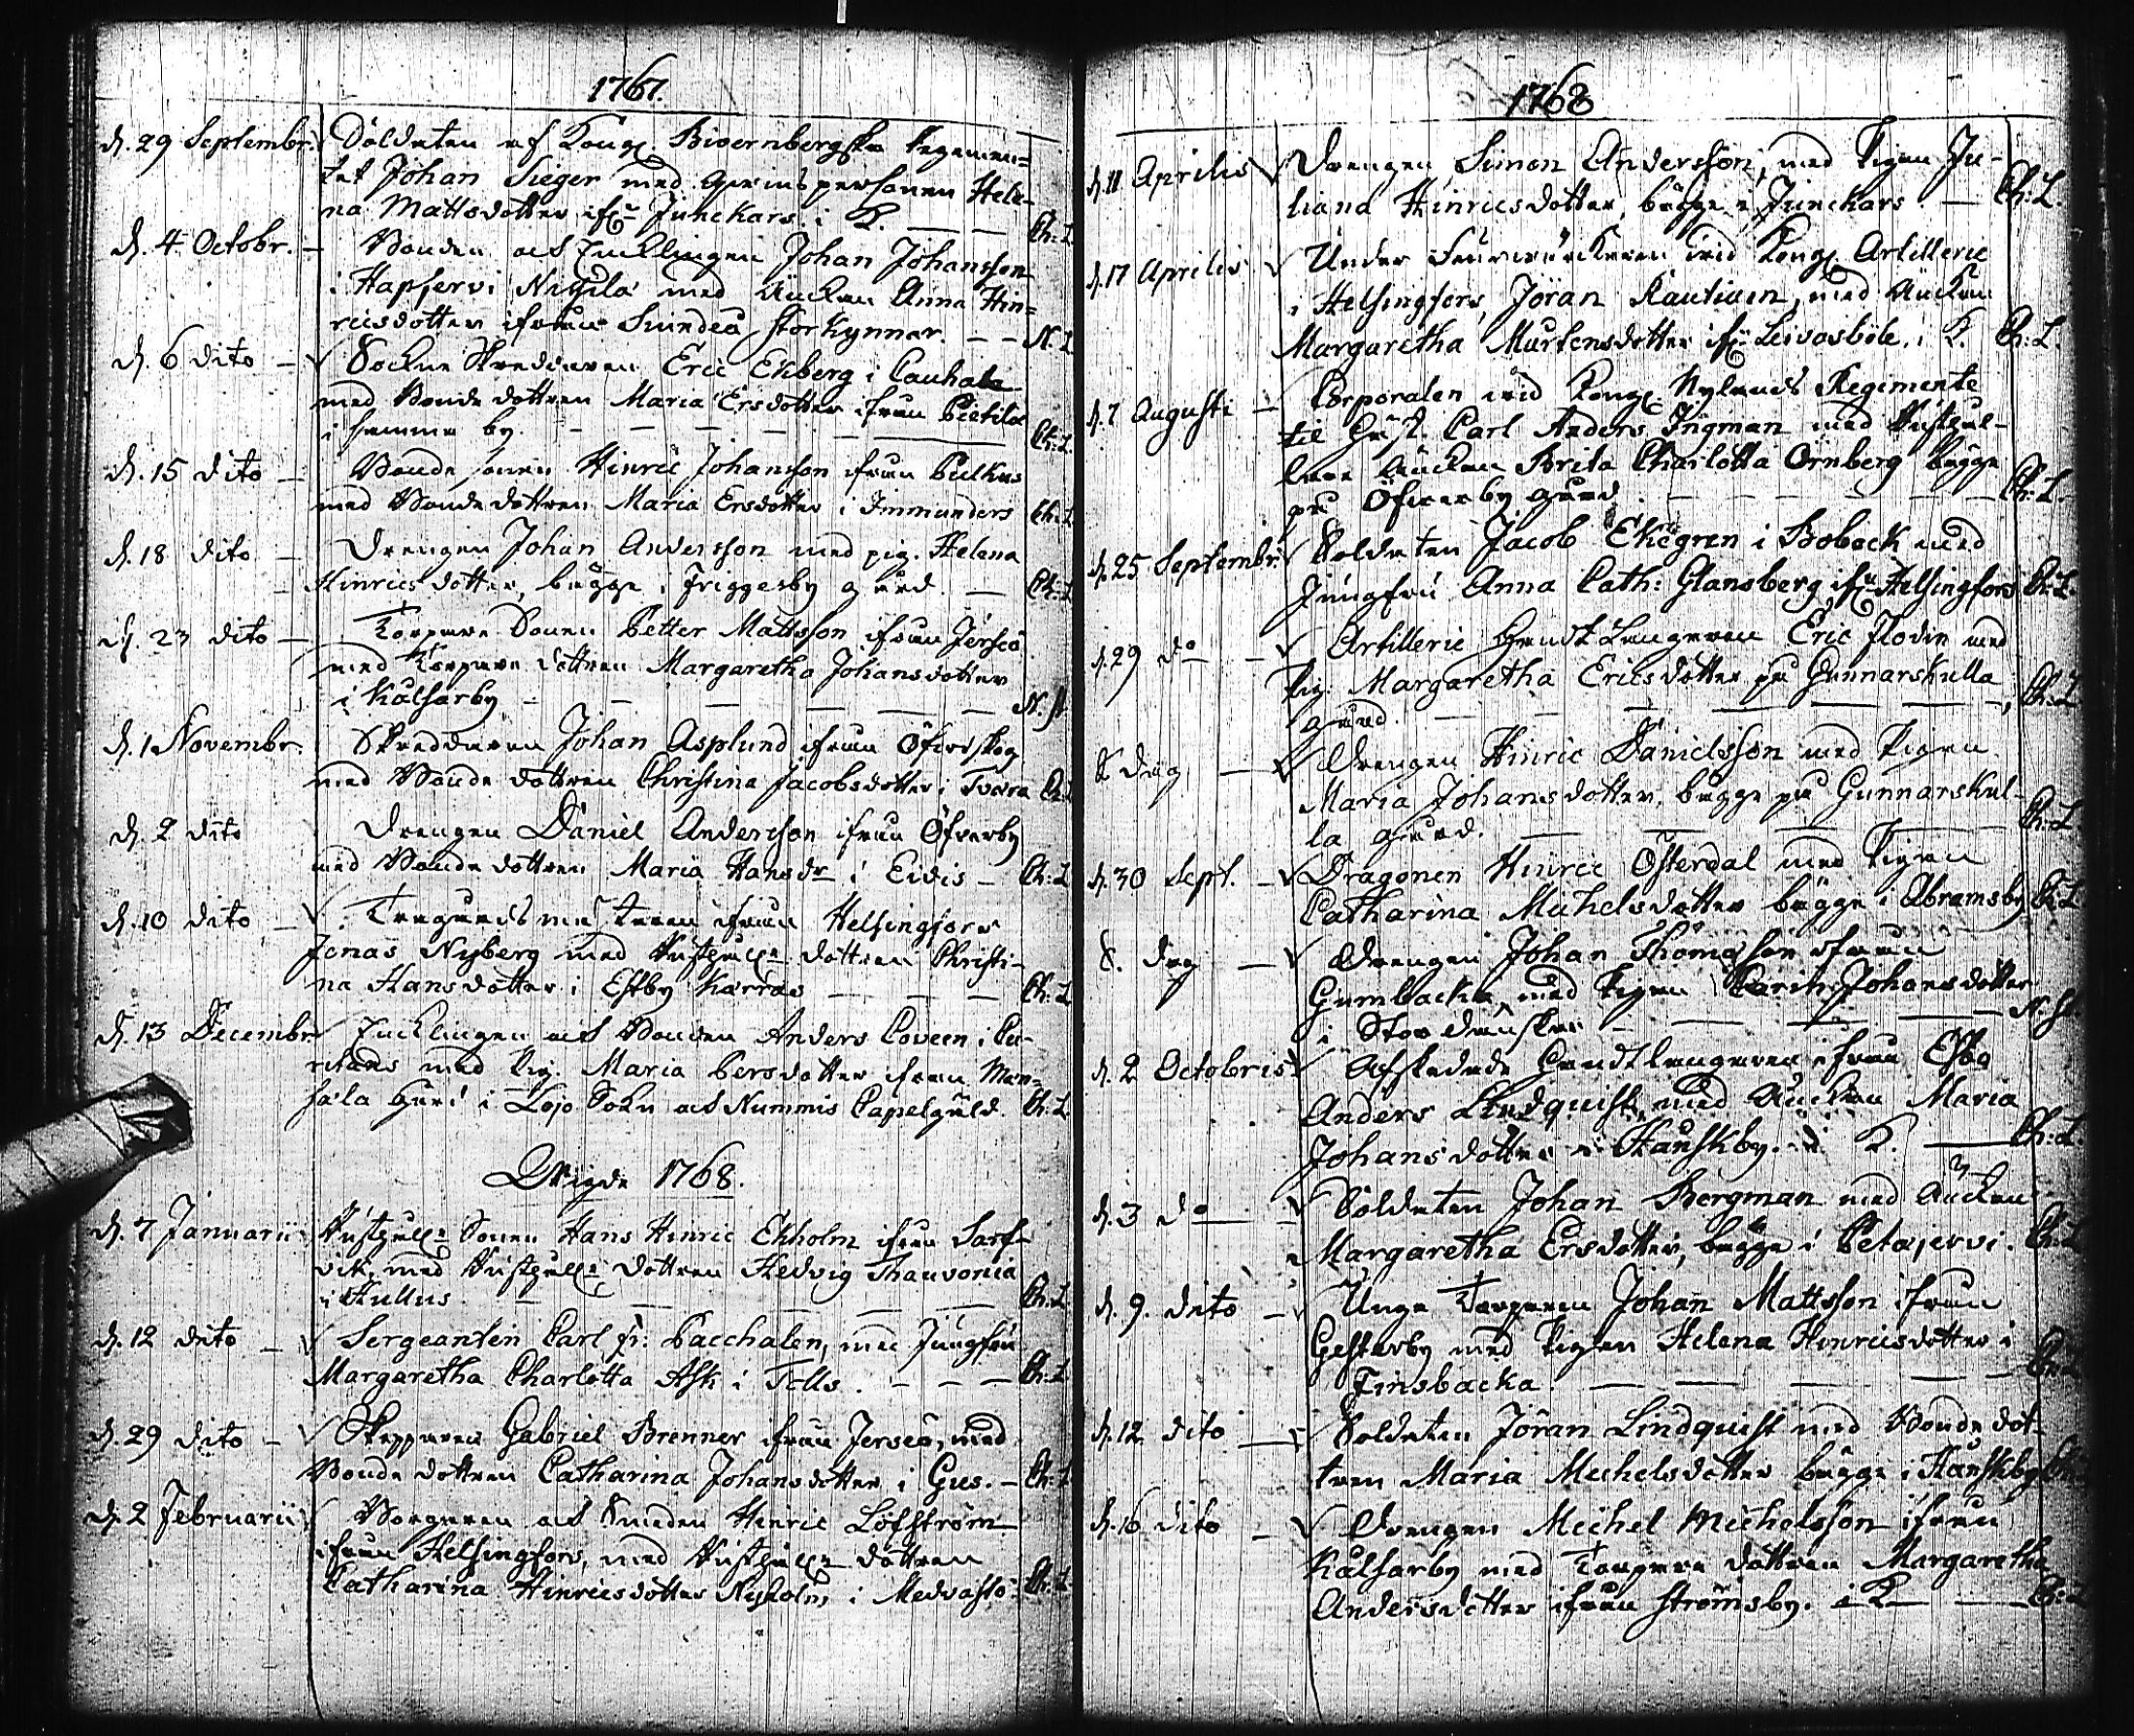 1767.
d. 29 Septembr. Soldaten af Kongl. Biernbergska Regemen=
tet Johan Sieger med qvinspersonen Hele-
na Mattsdotter ifrn Junckars i K. — — Ch: L
d. 4 Octobr. — Bonden och Enklingen Johan Johansson
i Hapjervi Nigila med Änckan Anna Hin=
ricsdotter ifrån Svindeå storKynnar. — — N. L
d. 6 dito — Sockne Skreddaren Eric Ekberg i Cauhala
med Bonde dottren Maria Ersdotter ifrån Pietilä
i samma by. — — — — — Ch: L.
d. 15 dito — Bonde sonen Hinric Johansson ifrån Pulkus
med Bonde dottren Maria Ersdotter i Immunders Ch: L
d. 18 dito — Drengen Johan Andersson med pig. Helena
Hinricsdotter, bägge i Friggesby gård. — Ch: L
d. 23 dito — Torpare Sonen Petter Mattsson ifrån Jerseö
med Torpare dottren Margaretha Johansdotter
i Kålsarby — — — — — N. H
d. 1 Novembr. Skreddaren Johan Asplund ifrån Öfverskog
med Bonde dottren Christina Jacobsdotter i Tvära Ch: L
d. 2 dito Drengen Daniel Andersson ifrån Öfverby
med Bonde dottren Maria Hansdr i Eivis — Ch: L
d. 10 dito — Tregårdsmestaren ifrån Helsingfors
Jonas Nyberg med Rusthålls dottren Christi-
na Hansdotter i Estby Karras — — — Ch: L
d. 13 Decembr. Encklingen och Bonden Anders Poveen i
rickans med Pig. Maria Persdotter ifrån Mon=
sala gård i Lojo Sokn och Nummis Capelgäld. Ch: L
Wigde 1768.
d. 7 Januarii Rusthålls Sonen Hans Hinric Ekholm ifrån Sarf-
vik, med Rusthålls dottren Hedvig Thauvonia
i Kullus — — — — — Ch: L
d. 12 dito — Sergeanten Carl Fr: Pacchalen, med Jungfru
Margaretha Charlotta Ask i Tolls. — — — Ch: L
d. 29 dito — Skepparen Gabriel Brenner ifrån Jerseö, med
Bonde dottren Catharina Johansdotter i Gies. — Ch: L
d. 2 Februarii Borgaren och Smeden Hinric Löfström
ifrån Helsingfors, med Rusthålls dottren
Catharina Hinricsdotter Nyholm, i Medvastö. Ch: L
1768
d. 11 Aprilis Drengen Simon Andersson, med Pigan Ju-
liana Hinricsdotter, bägge i Junckars. — Ch: L.
d. 17 Aprilis Under Feurverckeren vid Kongl. Artillerie
i Helsingfors, Jöran Kautiain, med Änckan
Margaretha Mårtensdotter ifrn Leivosböle. i K. Ch: L.
d. 7 Augusti — Corporalen vid Kongl. Nylands Regimente
til Häst. Carl Anders Ingman med Rusthål-
lare Änckan Brita Charlotta Örnberg bägge
på Öfverby gård. — — — — Ch: L.
d. 25 Septembr. Soldaten Jacob Ekegren i Boback med
Jungfru Anna Cath: Glansberg ifrn Helsingfors Ch: L.
d. 29 do — Artillerie Handtlangaren Eric Flodin med
Pig. Margaretha Ericsdotter på Gunnarskulla
gård. — — — — — Ch: L
S dag — Drengen Hinric Danielsson med Pigan
Maria Johansdotter, bägge på Gunnarskul-
la gård. — — — — Ch: L.
d. 30 Sept. — Dragonen Hinric Österdal med Pigan
Catharina Michelsdotter bägge i Abramsby Ch: L
S. dag — Drengen Johan Thomasson ifrån
Gumbacka, med Pigan Carin Johansdotter
i Stor — — — N. H.
d. 2 Octobris Afskedade Handtlangaren ifrån Esbo
Anders Lindquist, med Änckan Maria
Johansdotter i Hauskby. i K. — Ch: L.
d. 3 do — Soldaten Johan Bergman med Änckan
Margaretha Ersdotter, bägge i Petajervi. Ch: L
d. 9. dito — Unge Torparen Johan Mattsson ifrån
Gesterby med Pigan Helena Hinricsdotter i
Finsbacka. — — — — — Ch: L
d. 12 dito — Soldaten Jöran Lindquist med Bonde dot-
tren Maria Michelsdotter bägge i Hauskby Ch: L
d. 16 dito — Drengen Michel Michelsson ifrån
Kålsarby med Torpare dottren Margaretha
Andersdotter ifrån Strömsby. i K — Ch: L